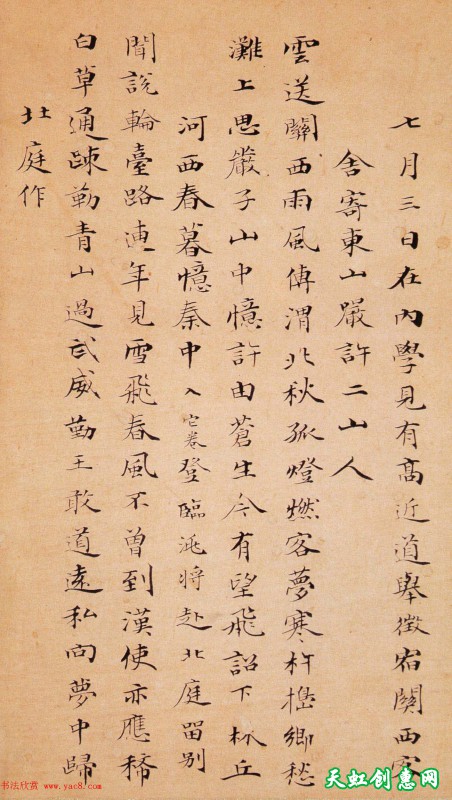 七月三日在內學見有高近道舉徵宿關西客
舍寄東山嚴許二山人
雲送關西雨風傳渭北秋孤燈燃客夢寒杵搗鄉愁
灘上思嚴子山中憶許由蒼生今有望飛詔下林丘
河西春暮憶秦中入它卷登臨洮將赴北庭留別
聞說輪臺路連年見雪飛春風不曾到漢使亦應稀
白草通疎勒青山過武威勤王敢道遠私向夢中歸
北庭作
书法欣赏 www.yac8.com
天虹创惠网